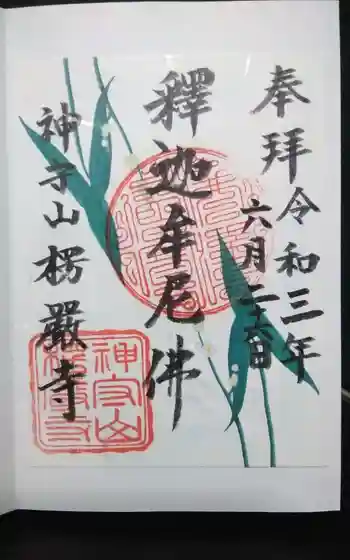 奉拝
令和三年
六月二十六日
釋迦牟尼佛
神守山
楞嚴寺
神守山
楞嚴寺